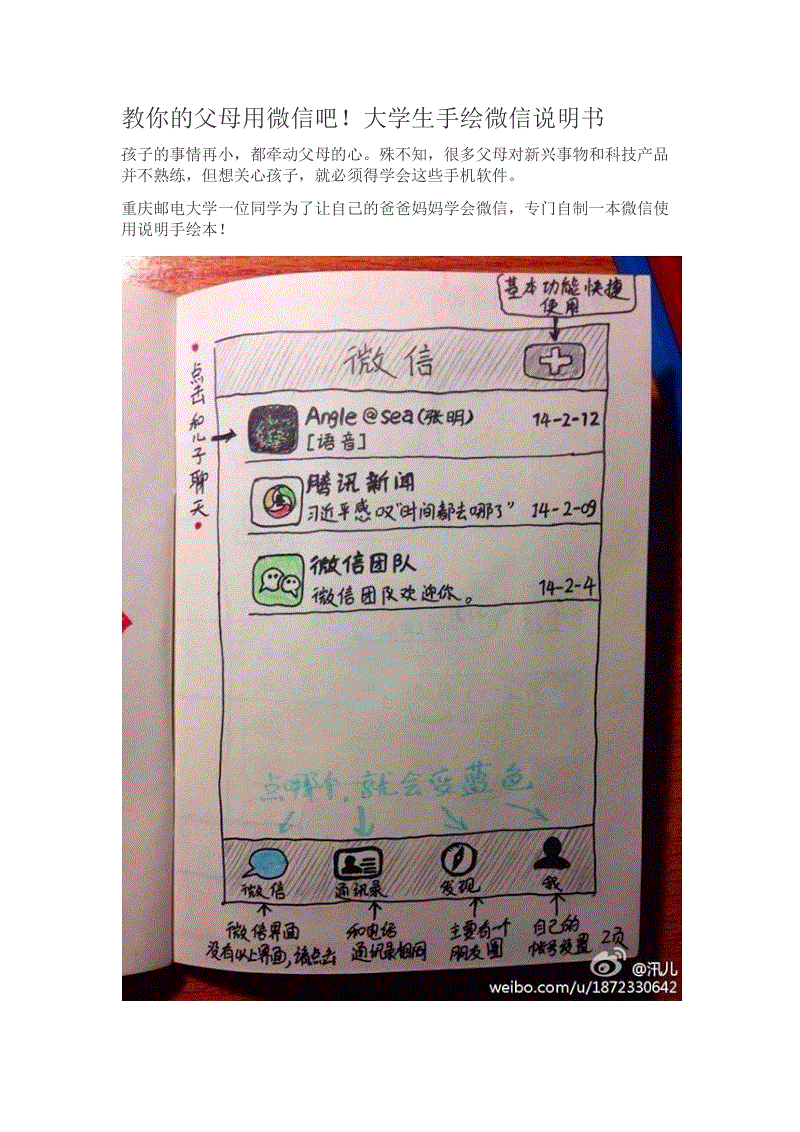 教你的父母用微信吧！大学生手绘微信说明书
孩子的事情再小，都牵动父母的心。殊不知，很多父母对新兴事物和科技产品
并不熟练，但想关心孩子，就必须得学会这些手机软件。
重庆邮电大学一位同学为了让自己的爸爸妈妈学会微信，专门自制一本微信使
用说明手绘本！
基本功能快捷
使用
微信
点击和儿子聊天
Angle@sea(张明)
14-2-12
[语音]
腾讯新闻
习近平感叹“时间都去哪了”
14-2-09
微信团队
微信团队欢迎你。
14-2-4
点哪个,就会变蓝色
微信
通讯录
发现
我
微信界面
没有以上界面,请点击
和电信
通讯录相同
主要有一个
朋友圈
自己的
帐号设置
2页
@汛儿
weibo.com/u/1872330642